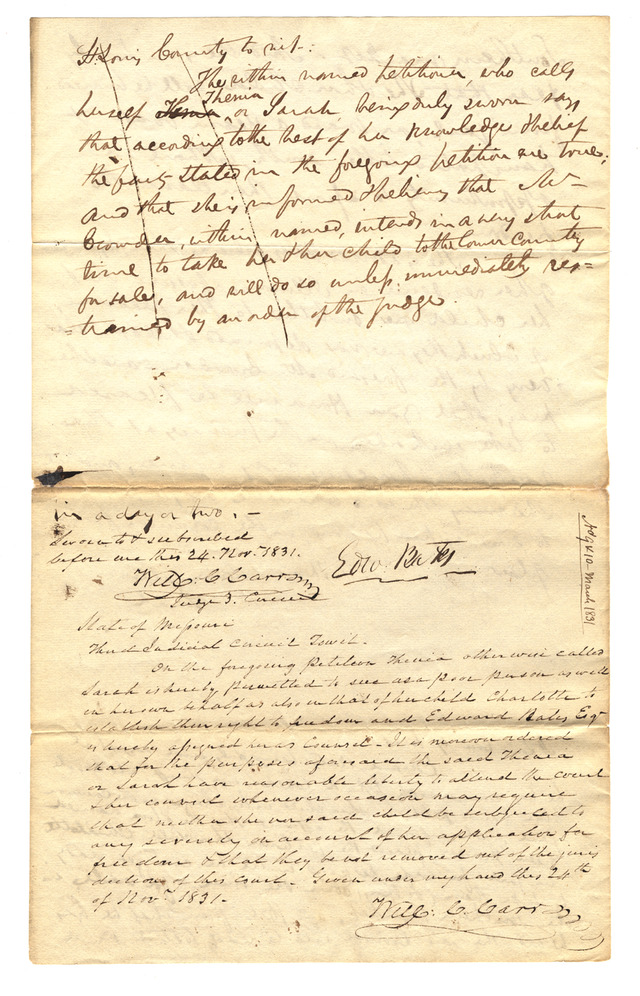 St. Louis County to wit:
The within named petitioner, who calls
herself Thenia, or Sarah, being duly sworn says
that according to the best of her knowledge & belief
the facts stated in the foregoing petition are true;
and that she is informed & believes that Mr
Crowder, within named, intends in a very short
time to take her & her child to the lower country
for sale, and will do so unless immediately res=
=trained by an order of the judge.
in a day or two. —
Sworn to & subscribed
before me this 24. Nov. 1831.
Edw. Bates
Will: C. Carr
Judge 3. Circuit
State of Missouri
Third Judicial Circuit Towit.
On the foregoing Petition Thenia otherwise called
Sarah is hereby permitted to sue as a poor person as well
in her own behalf as also in that of her child Charlotte to
establish their right to freedom and Edward Bates Esqr
is hereby assigned her as Counsel. It is moreover ordered
that for the purposes aforesaid the said Thenia
or Sarah have reasonable liberty to attend the court
& her counsel whenever occasion may require
that neither she nor said child be subjected to
any severity on account of her application for
freedom & that they be not removed out of the juris
diction of this court. Given under my hand this 24th
of Novr. 1831.
Will: C. Carr
March 1831